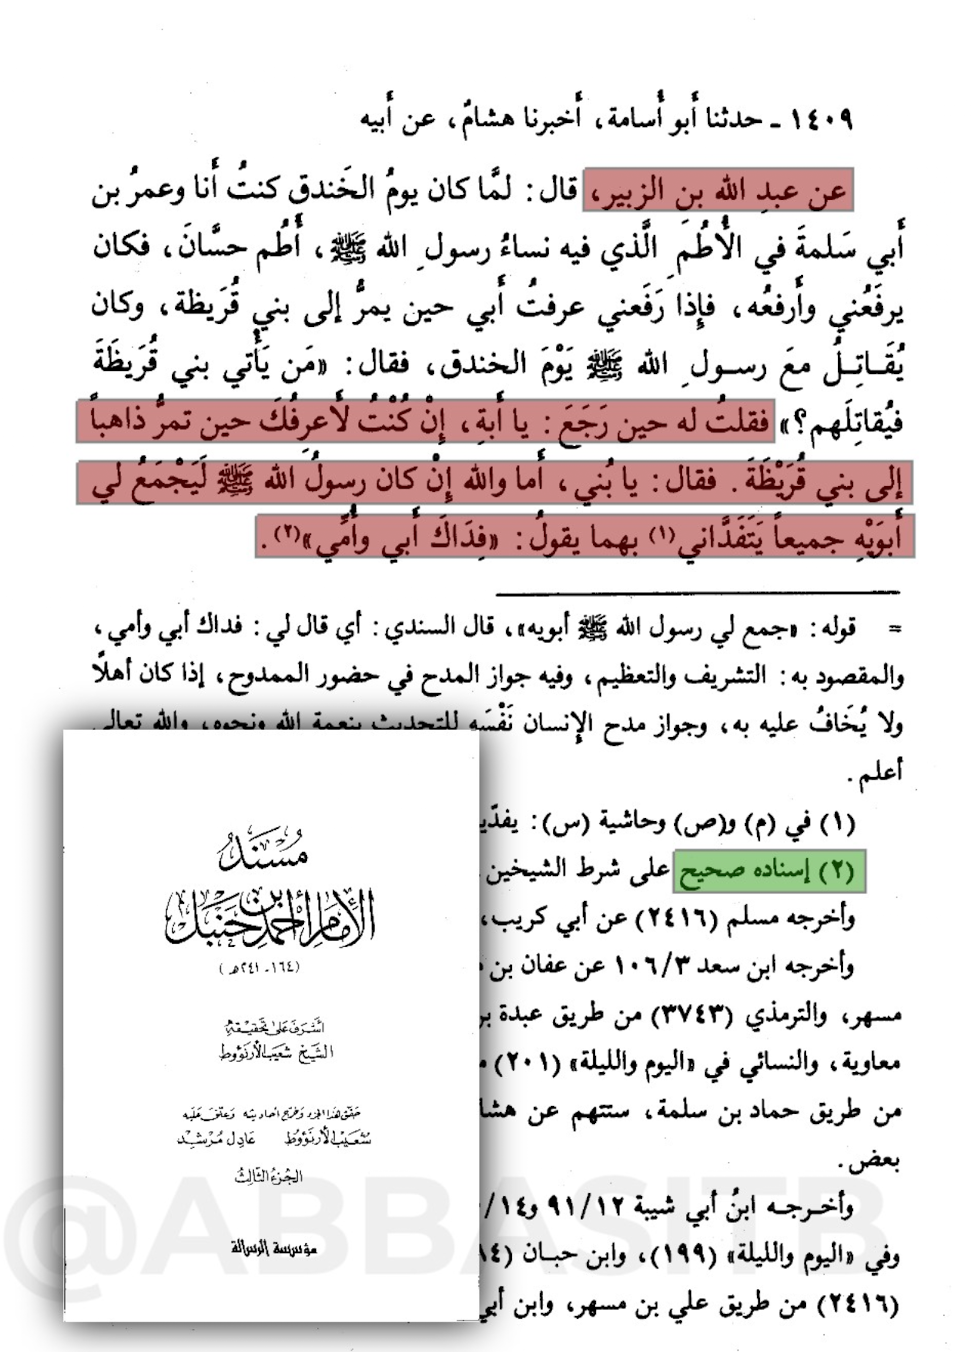 ١٤٠٩ - حدثنا أَبو أُسامة، أَخبرنا هشامٌ، عن أَبيه
عن عبدِ الله بن الزبير، قال: لمَّا كان يومُ الخَندقِ كنتُ أَنا وعمرُ بن
أَبي سَلمةَ في الأُطُمِ الَّذي فيه نساءُ رسولِ الله ﷺ، أُطُم حسَّانَ، فكان
يرفَعُني وأَرفعُه، فإِذا رَفَعني عرفتُ أَبي حين يمرُّ إلى بني قُرَيظة، وكان
يُقَـاتِـلُ معَ رسـولِ الله ﷺ يَوْمَ الخندق، فقال: «مَن يَأْتي بني قُرَيظَةَ
فيُقاتِلَهم؟» فقلتُ له حين رَجَعَ: يا أَبةِ، إِنْ كُنْتُ لَأَعرِفُكَ حين تمرُّ ذاهباً
إلى بني قُرَيْظَةَ. فقال: يا بُني، أَما والله إِنْ كان رسولُ الله ﷺ لَيَجْمَعُ لي
أَبَوَيْهِ جميعاً يَتَفَدَّاني(١) بهما يقولُ: «فِدَاكَ أَبي وأُمِّي»(٢).
= قوله: «جمع لي رسول الله ﷺ أبويه»، قال السندي: أي قال لي: فداك أبي وأمي،
والمقصود به: التشريف والتعظيم، وفيه جواز المدح في حضور الممدوح، إذا كان أهلًا
ولا يُخَافُ عليه به، وجواز مدح الإنسان نَفْسَه للتحديث بنعمة الله ونحوه، والله تعالى
أعلم.
(١) في (م) و(ص) وحاشية (س):
(٢) إسناده صحيح على شرط الشيخين.
وأخرجه مسلم (٢٤١٦) عن أبي كريب،
وأخرجه ابن سعد ١٠٦/٣ عن عفان بن
مسهر، والترمذي (٣٧٤٣) من طريق عبدة
معاوية، والنسائي في «اليوم والليلة» (٢٠١)
من طريق حماد بن سلمة، ستتهم عن
بعض.
وأخـرجـه ابنُ أبي شيبة ٩١/١٢
وفي «اليوم والليلة» (١٩٩)، وابن حبـان
(٢٤١٦) من طريق علي بن مسهر، وابن
مُسْنَدُ
الإِمَامِ أَحْمَد بْنِ حَنْبَل
(١٦٤ - ٢٤١ هـ)
أشرف على تحقيقه
الشيخ شعيب الأرنؤوط
حقق هذا الجزء وخرج أحاديثه وعلق عليه
شعيب الأرنؤوط عادل مرشد
الجزء الثالث
مؤسسة الرسالة
@ABBASITB